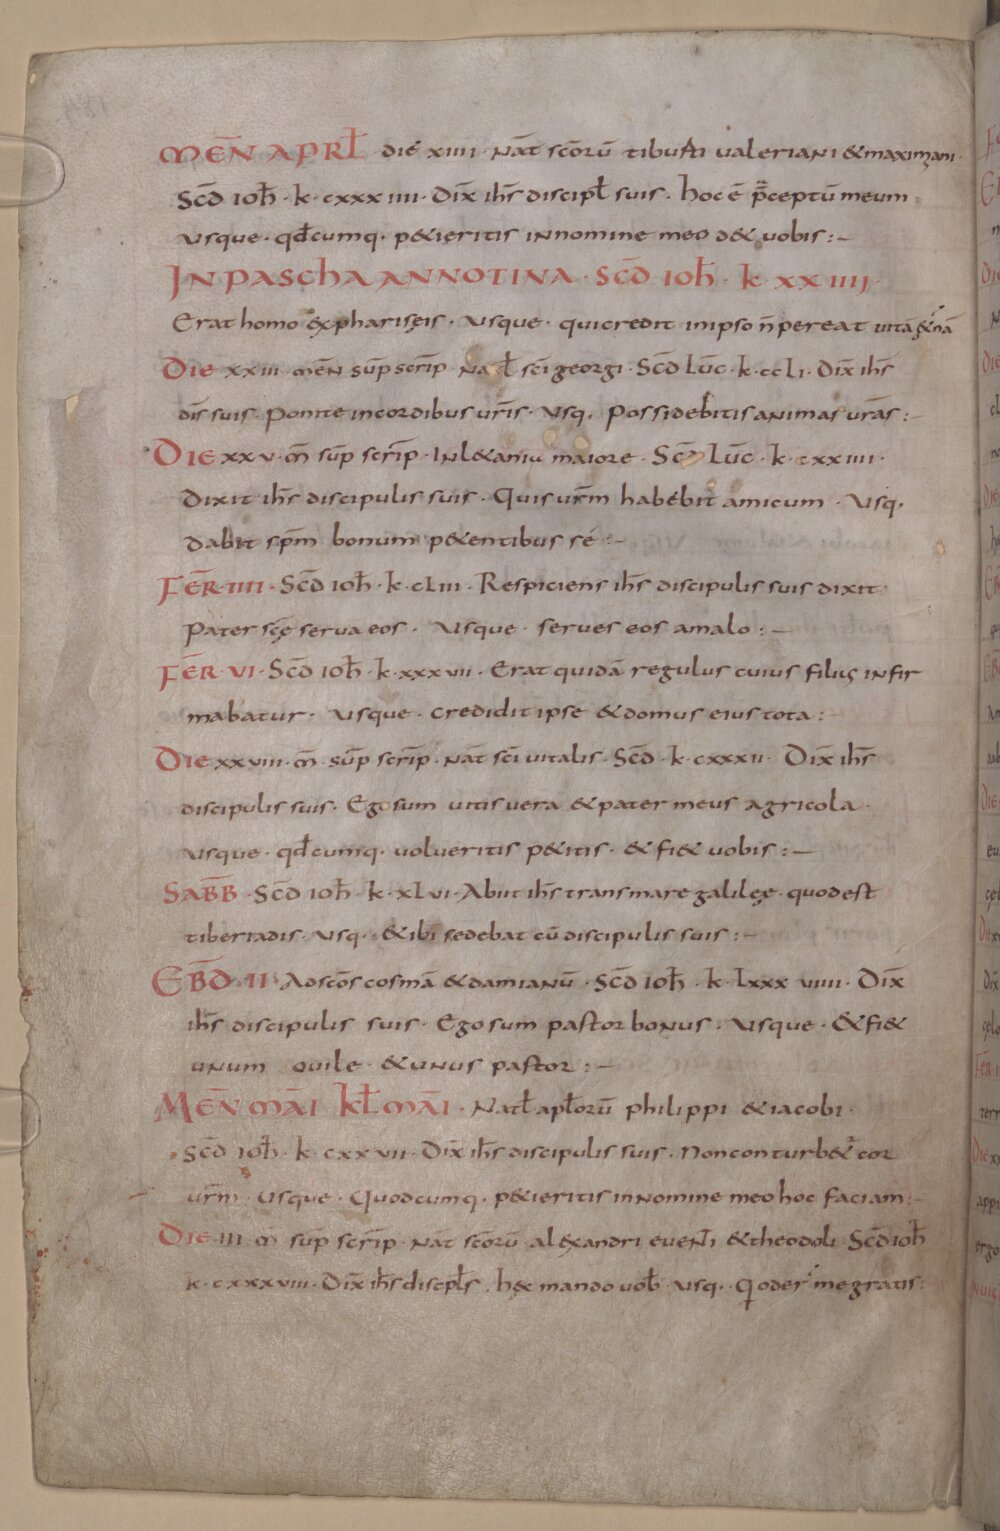 MEN̄ APRL̄ die xiiii · Nāt sc̄orū tiburti ualeriani &maximani ·
Sc̄d ioh̄ · k · cxxxiiii · Dix̄ ih̄s discipl̄ suis · hoc ē p̄ceptū meum
usque · qd̄cumq · p&ieritis innomine meo d& uobis :–
IN PASCHA ANNOTINA · Sc̄d ioh̄ · k xxiiii ·
Erat homo ex pharisęis · Usque · quicredit inipso n̄ pereat uitā &nā
Die xxiii men̄ sup̄ scrip̄ Natl̄ sc̄i georgi · Sc̄d Luc̄ · k · ccli · Dix̄ ih̄s
dis̄ suis · Ponite incordibus uris̄ · Usq · Possidebitis animas uras̄ :–
Die xxv · m̄ sup̄ scrip̄ · In l&ania maiore · Sc̄d Luc̄ · k · cxxiiii ·
Dixit ih̄s discipulis suis · Quis ur̄m habebit amicum · Usq ·
dabit sp̄m bonum p&entibus sé :–
FER̄ · IIII · Sc̄d ioh̄ · k · cliii · Respiciens ih̄s discipulis suis dixit
Pater sc̄ę serua eos · Usque · serues eos amalo :–
FER̄ · VI · Sc̄d ioh̄ · k · xxxvii · Erat quidā regulus cuius filius infir
mabatur · Usque · credidit ipse &domus eius tota :–
Die xxviii · m̄ · sup̄ scrip̄ · Nat̄ sc̄i uitalis · Sc̄d · k · cxxxii · Dix̄ ih̄s
discipulis suis · Ego sum uitis uera &pater meus agricola ·
usque · qd̄cumq · uolueritis p&itis · & fi& uobis :–
SABB̄ · Sc̄d ioh̄ · k · xlvi · Abiit ih̄s trans mare galilęe · quod est
tiberiadis · Usq · &ibi sedebat cū discipulis suis :–
EBD̄ · II · Ad sc̄os cosmā &damianū · Sc̄d ioh̄ · k · lxxxviiii · Dix̄
ih̄s discipulis suis · Ego sum pastor bonus · Usque · &fi&
unum ouile · &unus pastor :–
MEN̄ MAĪ KL̄ MAĪ · Natl̄ apl̄orū philippi &iacobi ·
Sc̄d ioh̄ · k · cxxvii · Dix̄ ih̄s discipulis suis · Non conturb&ʳ cor
ur̄m · Usque · Quodcumq · p&ieritis in nomine meo hoc faciam :–
Die · iii · m̄ sup̄ scrip̄ · Nat̄ sc̄orū alexandri euenti &theodoli · Sc̄d ioh̄
k · cxxxviii · Dix̄ ih̄s discipl̄s · hęc mando uob̄ · Usq · Qi oder me gratis :